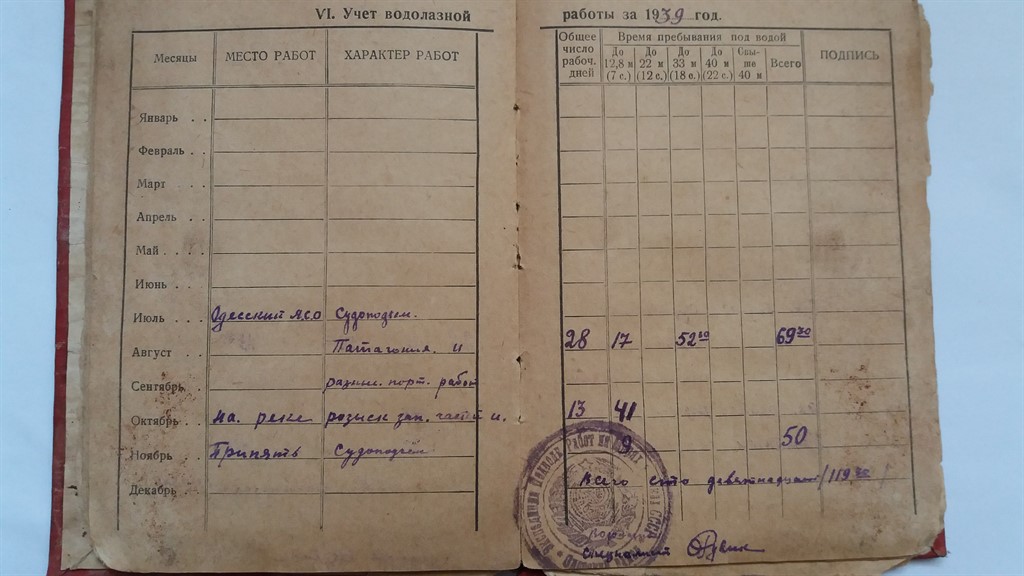 VI. Учет водолазной работы за 1939 год.
Месяцы МЕСТО РАБОТ ХАРАКТЕР РАБОТ Общее число рабоч. дней Время пребывания под водой ПОДПИСЬ
До 12,8 м (7 с.) До 22 м (12 с.) До 33 м (18 с.) До 40 м (22 с.) Свыше 40 м Всего
Январь . .
Февраль . .
Март . . .
Апрель . .
Май . . .
Июнь . . .
Июль . . . Одесский Судоподъем.
Август . . Патагония. и 28 17 52 69
Сентябрь . разные. порт. работ
Октябрь . . на. реке розыск зап. и. 13 41
Ноябрь . . Припять Судоподъем 9 50
Декабрь . . Всего сто девятнадцать /119